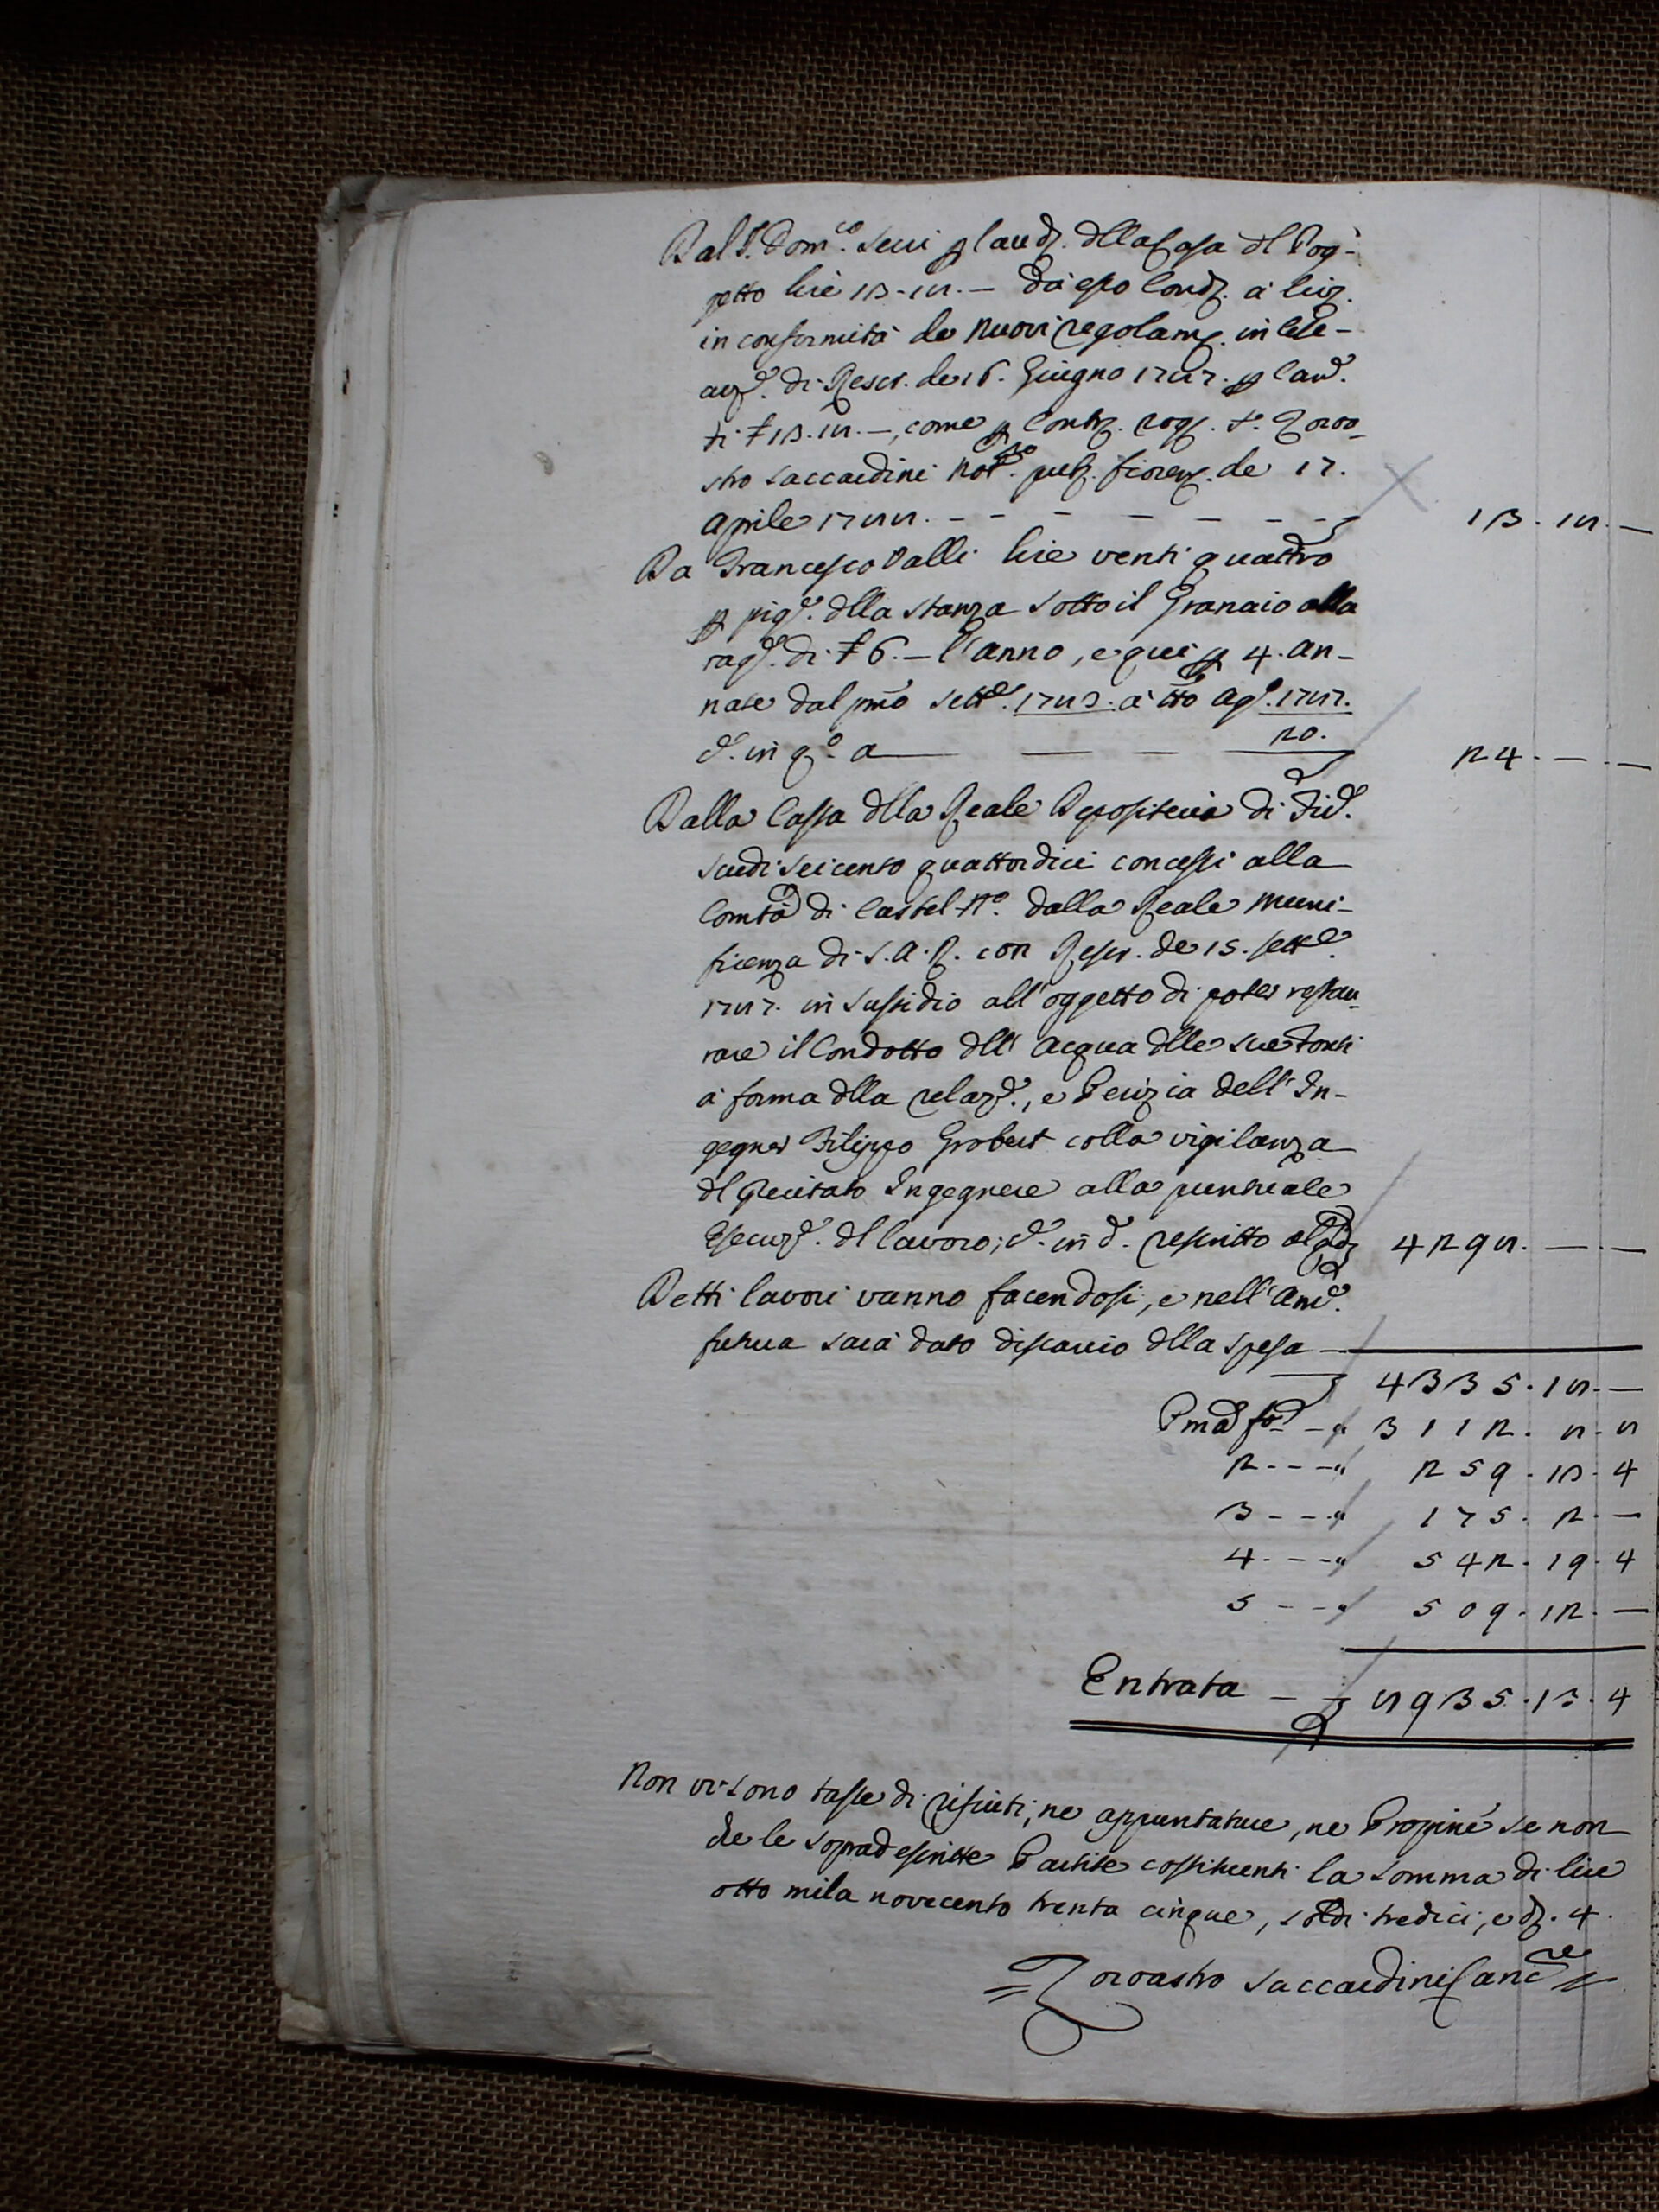 Dal S. Dom.co Seri p laud.o dlla Casa dl Pog-
getto lire 13.18.— da esso Condz. a livz.
in conformità de nuovi regolamz. in rele-
azz.e di Rescr. de 16. Giugno 1787. p laud.
di £ 13.18.—, come p Contrz. rogz. S. Zoroa-
stro Saccardini Not.ro pubz. fiorenz. de 17.
Aprile 1788. - - - - - - - 13.18.—
Da Francesco Valli lire venti quattro
p pig.e dlla stanza sotto il Granaio alla
rag.e di £ 6.— l'anno, e qui p 4. an-
nate dal pmo Sett.e 1783. a tto Ag.o 1787.
d. in q.o a — — — 20. 24.—.—
Dalla Cassa dlla Reale Depositeria di Fir.e
scudi seicento quattordici concessi alla
Comtà di Castel-N.o dalla Reale Muni-
ficenza di S.A.R. con Rescr. de 15. Sett.e
1787. in sussidio all'oggetto di poter restau-
rare il Condotto dll'acqua dlle sue Fonti
a forma dlla relaz.e, e Perizia dell'In-
gegner Filippo Grobert colla vigilanza
dl Precitato Ingegnere alla puntuale
Esecuz.e dl lavoro; d. in d. rescritto al 4298.—.—
Detti lavori vanno facendosi, e nell'And.e
futura sarà dato discarico dlla spesa —
4335.18.—
Pma fa - - 3112.8.8
2 - - - 259.13.4
3 - - - 175.2.—
4 - - - 542.19.4
5 - - - 509.12.—
Entrata - - 8935.13.4
Non vi sono tasse di rifiuti, ne appuntature, ne Propine se non
che le sopradescritte Partite costituenti la somma di lire
otto mila novecento trenta cinque, soldi tredici, e dz. 4.
Zoroastro Saccardini Canc.re